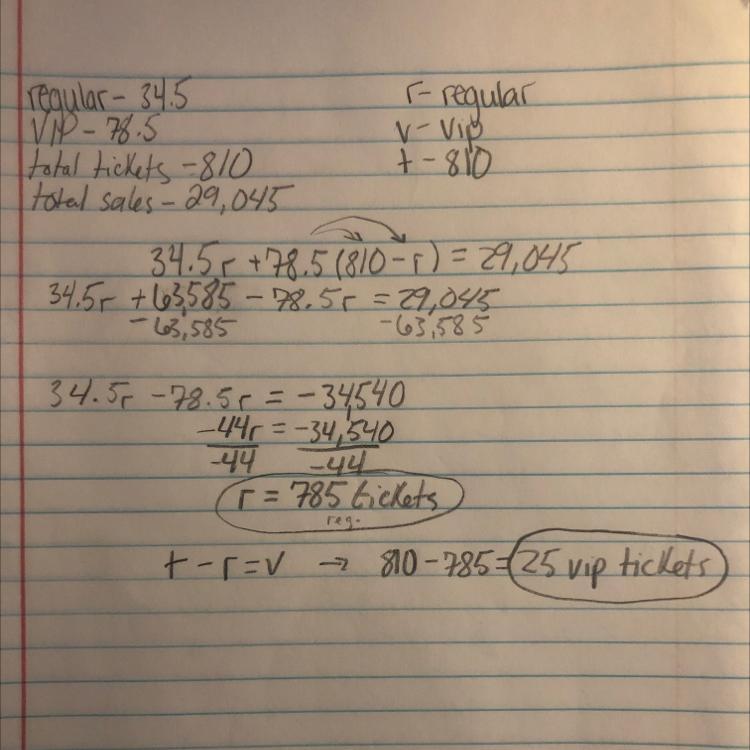 regular - 34.5
r - regular
VIP - 78.5
v - vip
total tickets - 810
t - 810
total sales - 29,045
34.5r + 78.5 (810 - r) = 29,045
34.5r + 63,585 - 78.5r = 29,045
- 63,585 - 63,585
34.5r - 78.5r = - 34,540
-44r = -34,540
-44 -44
r = 785 tickets
reg.
t - r = v → 810 - 785 = 25 vip tickets